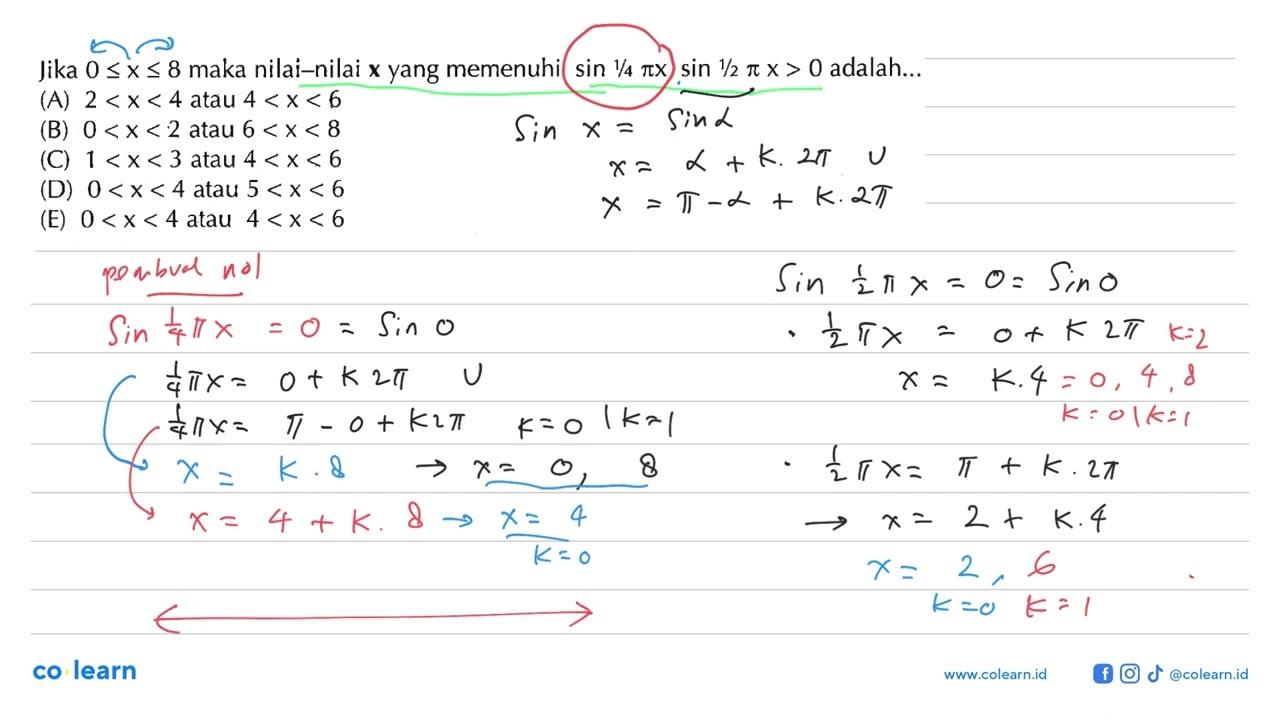 Jika 0 ≤ x ≤ 8 maka nilai–nilai x yang memenuhi sin ¼ πx sin ½ π x > 0 adalah...
(A) 2 < x < 4 atau 4 < x < 6
(B) 0 < x < 2 atau 6 < x < 8
(C) 1 < x < 3 atau 4 < x < 6
(D) 0 < x < 4 atau 5 < x < 6
(E) 0 < x < 4 atau 4 < x < 6
Sin x = Sin α
x = α + k. 2π ∪
x = π - α + k. 2π
pembuat nol
Sin 1/4 πx = 0 = Sin 0
1/4 πx = 0 + k 2π ∪
1/4 πx = π - 0 + k 2π k=0 | k=1
x = k . 8 → x = 0, 8
x = 4 + k. 8 → x = 4
k=0
Sin 1/2 π x = 0 = Sin 0
• 1/2 πx = 0 + k 2π k=2
x = k.4 = 0, 4, 8
k=0 | k=1
• 1/2 πx = π + k. 2π
→ x = 2 + k.4
x = 2, 6
k=0 k=1
co learn
www.colearn.id @colearn.id